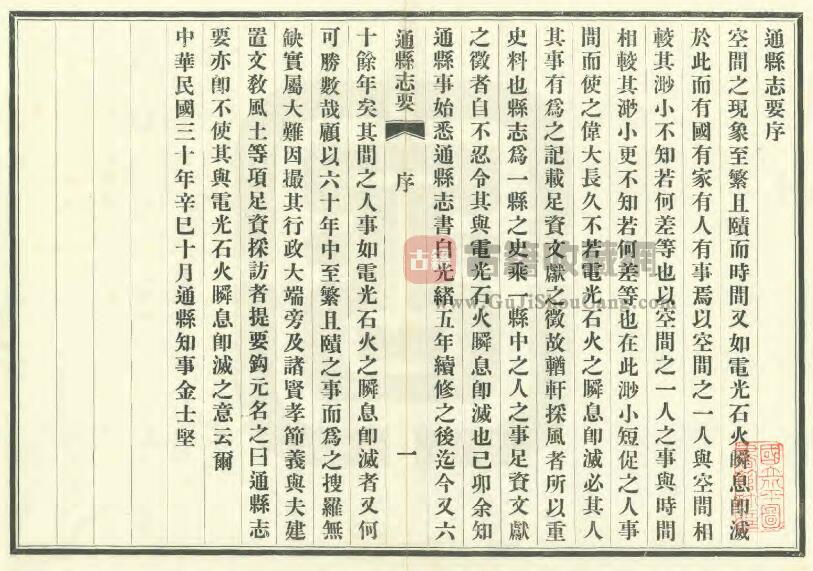 通縣志要序
空間之現象至繁且賾而時間又如電光石火瞬息卽滅
於此而有國有家有人有事焉以空間之一人與空間相
較其渺小不知若何差等也以空間之一人之事與時間
相較其渺小更不知若何差等也在此渺小短促之人事
間而使之偉大長久不若電光石火之瞬息卽滅必其人
其事有爲之記載足資文獻之徵故輶軒採風者所以重
史料也縣志爲一縣之史乘一縣中之人之事足資文獻
之徵者自不忍令其與電光石火瞬息卽滅也己卯余知
通縣事始悉通縣志書自光緒五年續修之後迄今又六
通縣志要
序
一
十餘年矣其間之人事如電光石火之瞬息卽滅者又何
可勝數哉顧以六十年中至繁且賾之事而爲之搜羅無
缺實屬大難因撮其行政大端旁及諸賢孝節義與夫建
置文敎風土等項足資採訪者提要鈎元名之曰通縣志
要亦卽不使其與電光石火瞬息卽滅之意云爾
中華民國三十年辛巳十月通縣知事金士堅
古籍
古籍收藏網
www.GuJiShouCang.com